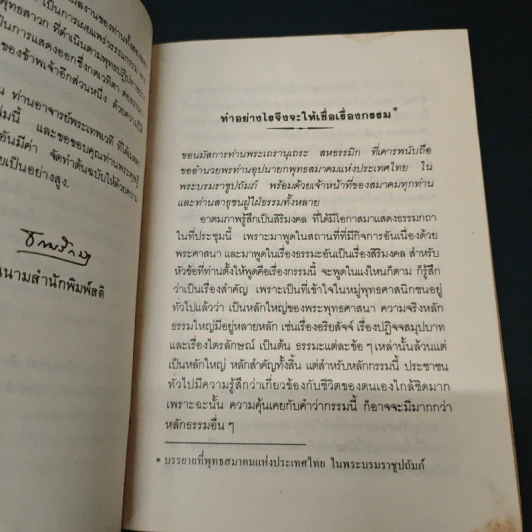 ผลงานของท่านทั้งสอง
เป็นการเผยแพร่วรรณกรรม
พุทธสาวก ที่ดำเนินตามพุทธปฏิปทา
เป็นการแสดงออกซึ่งกตเวทิตา ต่อธรรม
ของข้าพเจ้าอีกส่วนหนึ่ง ด้วยความ
ท่านอาจารย์พระเทพเวที ที่ได้
นี้ และขอขอบคุณท่านพระครู
อันมีค่า จัดทำต้นฉบับให้ด้วยความ
เป็นอย่างสูง.
นามสำนักพิมพ์สติ
ทำอย่างไรจึงจะให้เชื่อเรื่องกรรม*
ขอนมัสการท่านพระเถรานุเถระ สหธรรมิก ที่เคารพนับถือ
ขออำนวยพรท่านอุปนายกพุทธสมาคมแห่งประเทศไทย ใน
พระบรมราชูปถัมภ์ พร้อมด้วยเจ้าหน้าที่ของสมาคมทุกท่าน
และท่านสาธุชนผู้ใฝ่ธรรมทั้งหลาย
อาตมภาพรู้สึกเป็นสิริมงคล ที่ได้มีโอกาสมาแสดงธรรมกถา
ในที่ประชุมนี้ เพราะมาพูดในสถานที่ที่มีกิจการอันเนื่องด้วย
พระศาสนา และมาพูดในเรื่องธรรมะอันเป็นเรื่องสิริมงคล สำหรับ
หัวข้อที่ท่านตั้งให้พูดคือเรื่องกรรมนี้ จะพูดในแง่ไหนก็ตาม ก็รู้สึก
ว่าเป็นเรื่องสำคัญ เพราะเป็นที่เข้าใจในหมู่พุทธศาสนิกชนอยู่
ทั่วไปแล้วว่า เป็นหลักใหญ่ของพระพุทธศาสนา ความจริงหลัก
ธรรมใหญ่มีอยู่หลายหลัก เช่นเรื่องอริยสัจจ์ เรื่องปฏิจจสมุปบาท
และเรื่องไตรลักษณ์ เป็นต้น ธรรมะแต่ละข้อ ๆ เหล่านั้นล้วนแต่
เป็นหลักใหญ่ หลักสำคัญทั้งสิ้น แต่สำหรับหลักกรรมนี้ ประชาชน
ทั่วไปมีความรู้สึกว่าเกี่ยวข้องกับชีวิตของตนเองใกล้ชิดมาก
เพราะฉะนั้น ความคุ้นเคยกับคำว่ากรรมนี้ ก็อาจจะมีมากกว่า
หลักธรรมอื่น ๆ
* บรรยายที่พุทธสมาคมแห่งประเทศไทย ในพระบรมราชูปถัมภ์